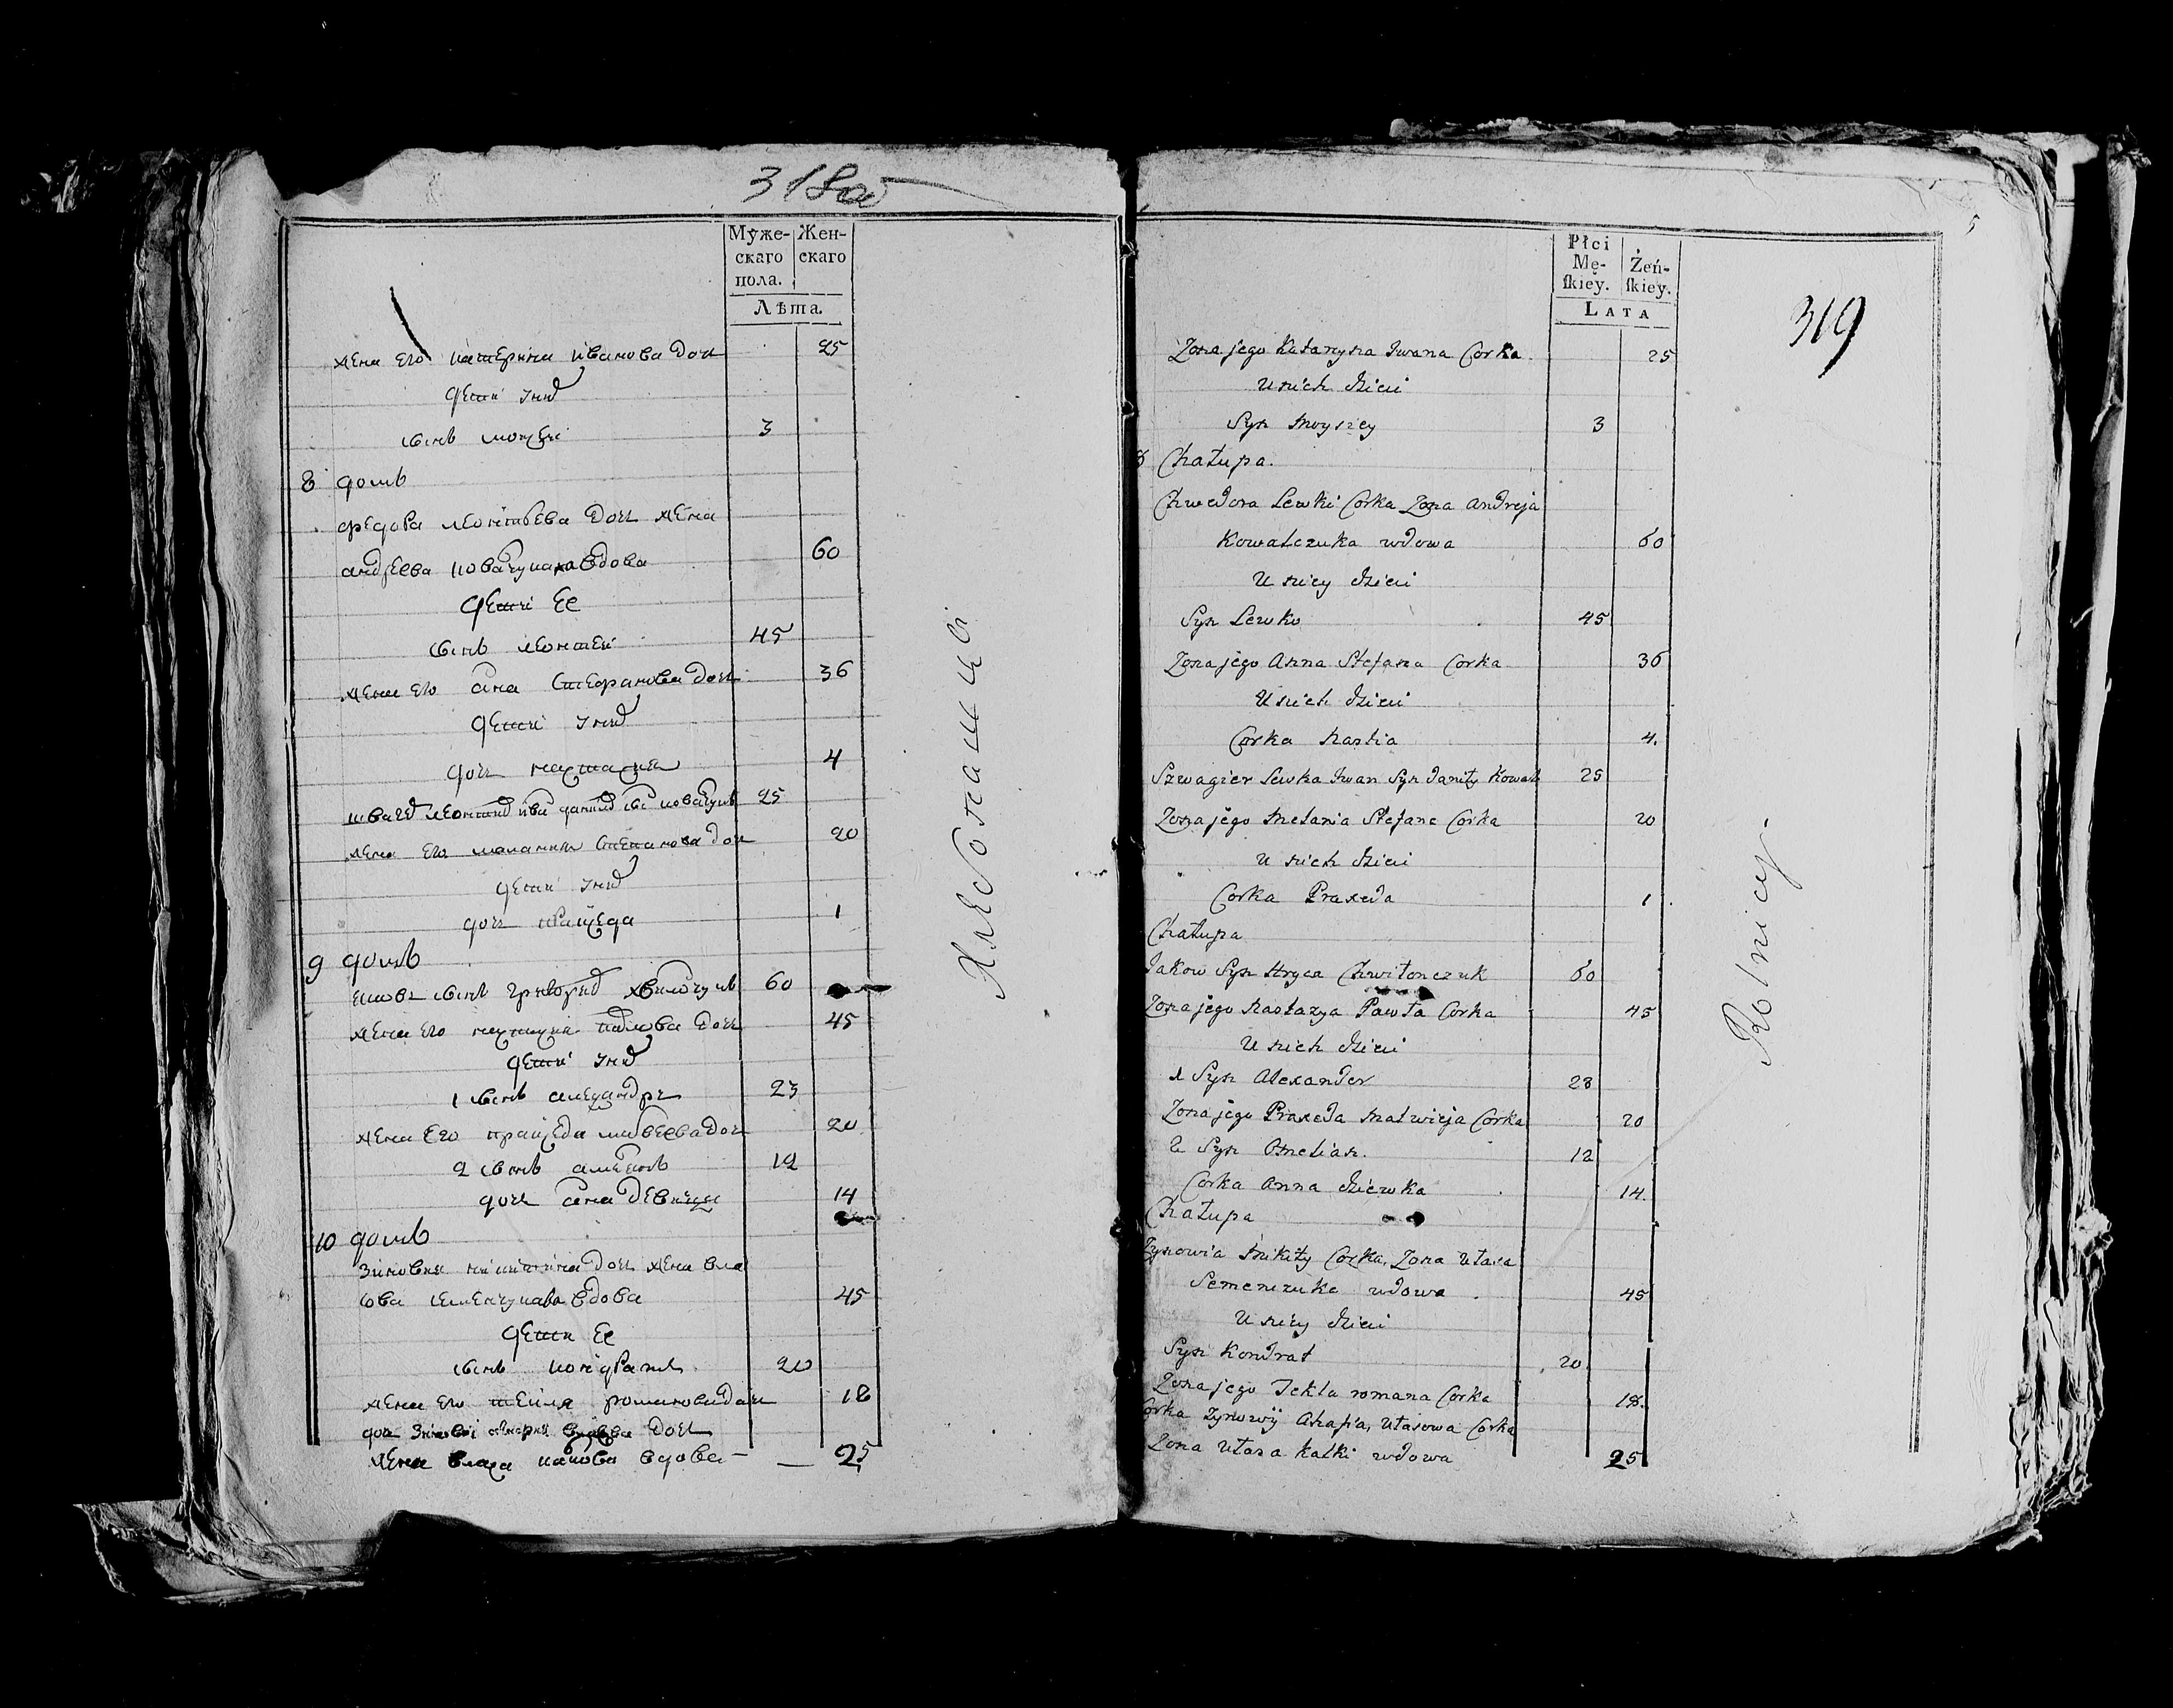 318 об
Муже-
скаго
пола.
Жен-
скаго
Лѣта.
жена его катерина иванова дочь 25
дети у ни
сынъ моисей 3
8 домъ
федора леонтьева дочь жена
андреева ковалчука вдова 60
дети ее
сынъ леонтей 45
жена его ана стефанова дочь 36
дети у ни
дочь настасия 4
швагер леонтия ива данил сы ковалчукъ 25
жена его малания степанова доч 20
дети у ни
дочь пракседа 1
9 домъ
яковъ сынъ григория хвилончукъ 60
жена его настасия павлова дочь 45
дети у ни
1 сынъ александръ 23
жена его пракседа матвеева дочь 20
2 сынъ 12
дочь ана девица 14
10 домъ
зиновия никитина дочь жена вла
сова семенчукава вдова 45
дети ее
сынъ кондратъ 20
жена его текля романова дочь 18
дочь дочь
жена власа вдова 25
Хлебопашцы
5
319
Płci
Mę-
ſkiey.
Żeń-
ſkiey.
LATA
Zona jego Katarzyna Iwana Corka 25
U nich dzieci
Syn Moyszey 3
8 Chałupa.
Chwedora Lewki Corka Zona Andreja
Kowalczuka wdowa 60
U niey dzieci
Syn Lewko 45
Zona jego Anna Stefana Corka 36
U nich dzieci
Corka Nastia 4.
Szwagier Lewka Iwan Syn Daniły Kowal 25
Zona jego Melania Stefana Corka 20
U nich dzieci
Corka Praxeda 1
Chałupa
Jakow Syn Hryca Chwilonczuk 60
Zona jego Nastazya Pawła Corka 45
U nich dzieci
1 Syn Alexander 23
Zona jego Praxeda Matwieja Corka 20
2 Syn Omelian. 12
Corka Anna dziewka 14.
Chałupa
Zynowia Mikity Corka, Zona Ułasa
Semenczuka wdowa 45
U niey dzieci
Syn Kondrat 20
Zona jego Tekla romana Corka 18.
Corka Zynowii Ahafia, Ułasowa Corka
Zona Ułasa Kalki wdowa 25
Rolnicy.